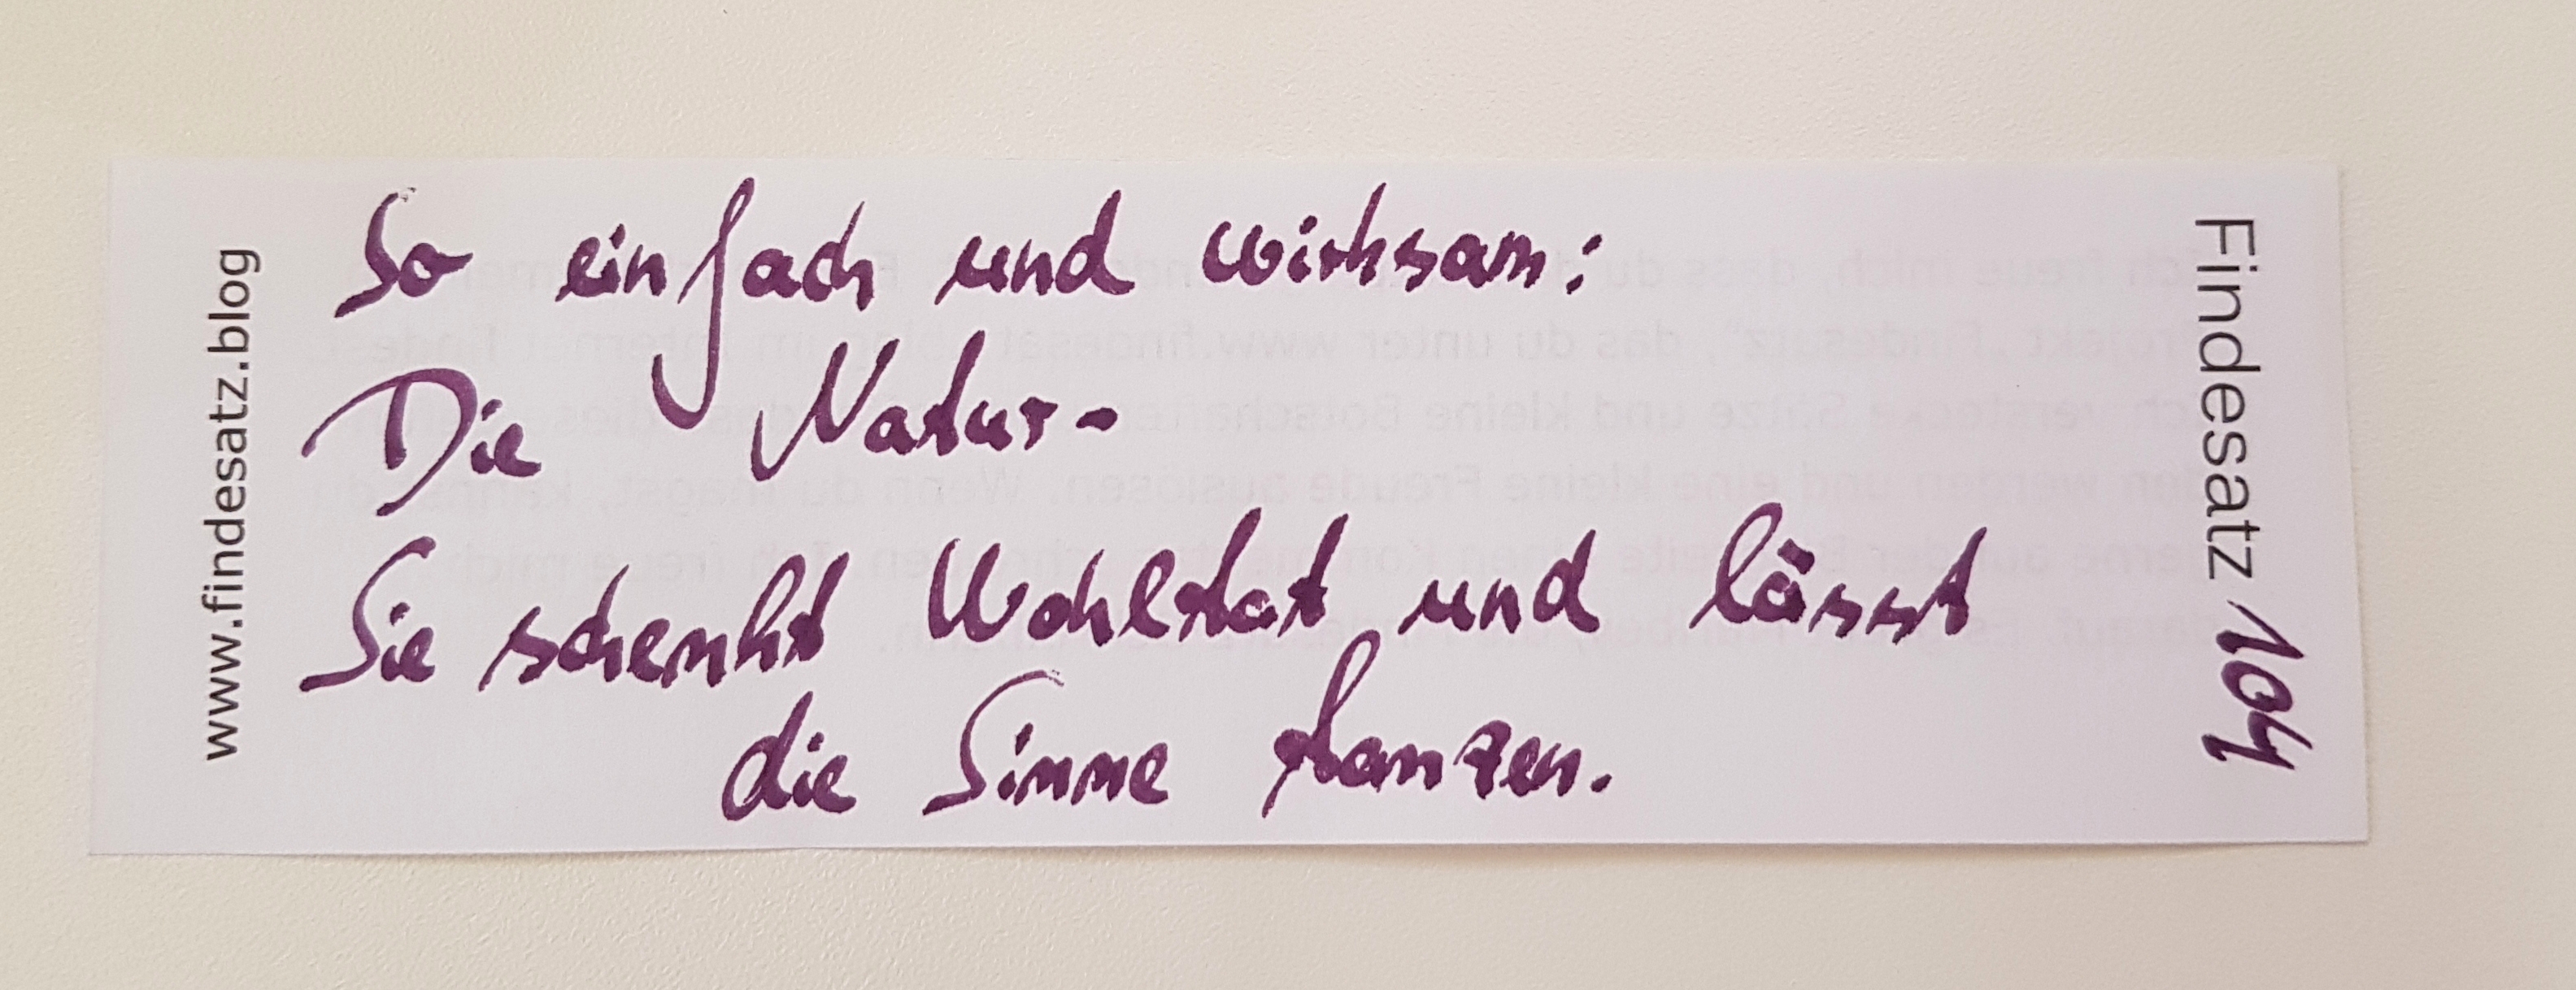 www.findesatz.blog
So einfach und wirksam:
Die Natur-
Sie schenkt Wohltat und lässt
die Sinne tanzen.
Findesatz 104